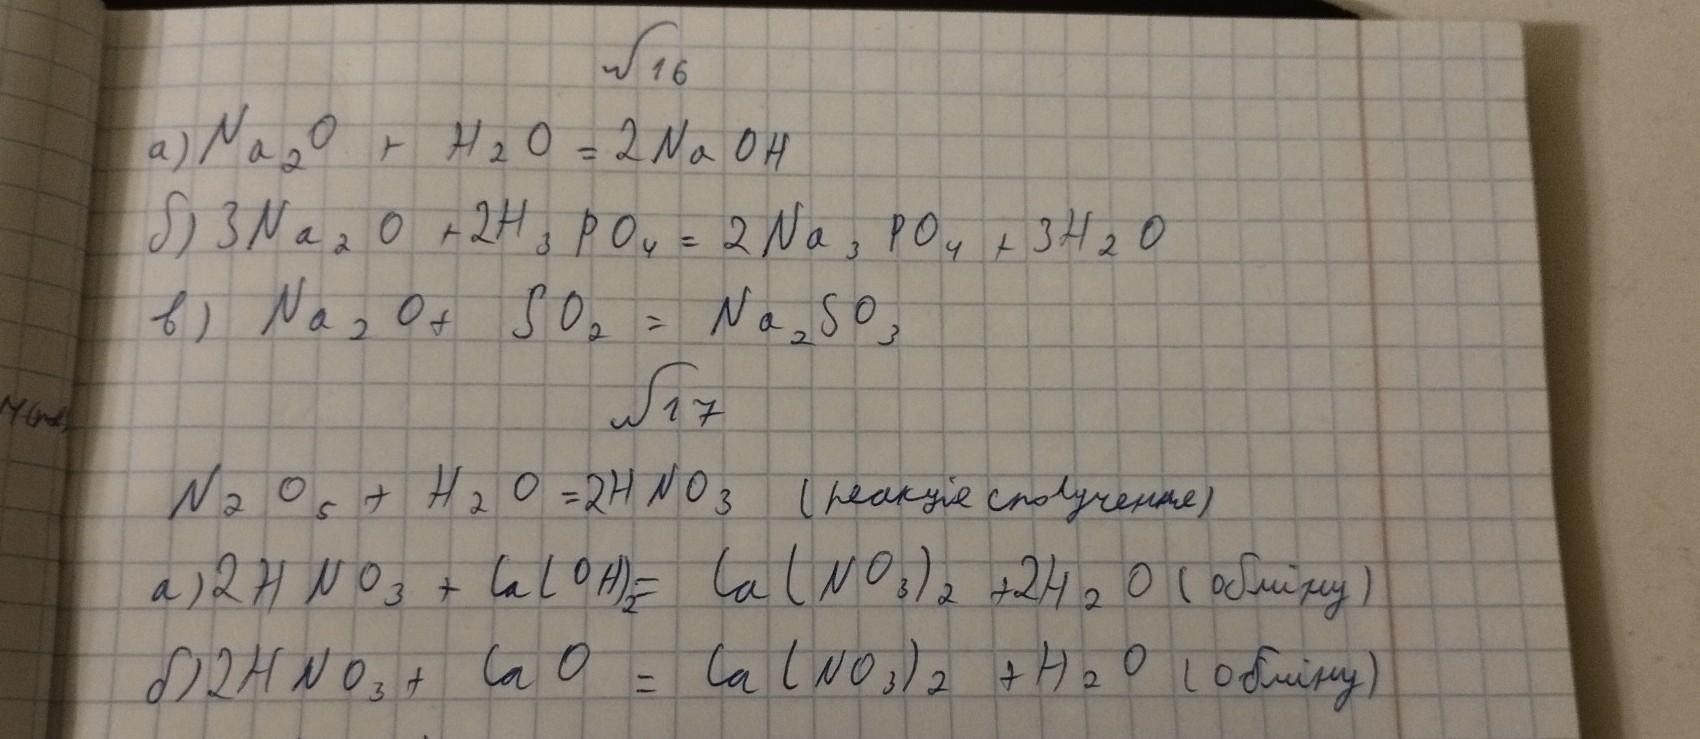 √16
а) Na₂O + H₂O = 2NaOH
б) 3Na₂O + 2H₃PO₄ = 2Na₃PO₄ + 3H₂O
в) Na₂O + SO₂ = Na₂SO₃
√17
N₂O₅ + H₂O = 2HNO₃ (реакція сполучення)
а) 2HNO₃ + Ca(OH)₂ = Ca(NO₃)₂ + 2H₂O (обміну)
б) 2HNO₃ + CaO = Ca(NO₃)₂ + H₂O (обміну)